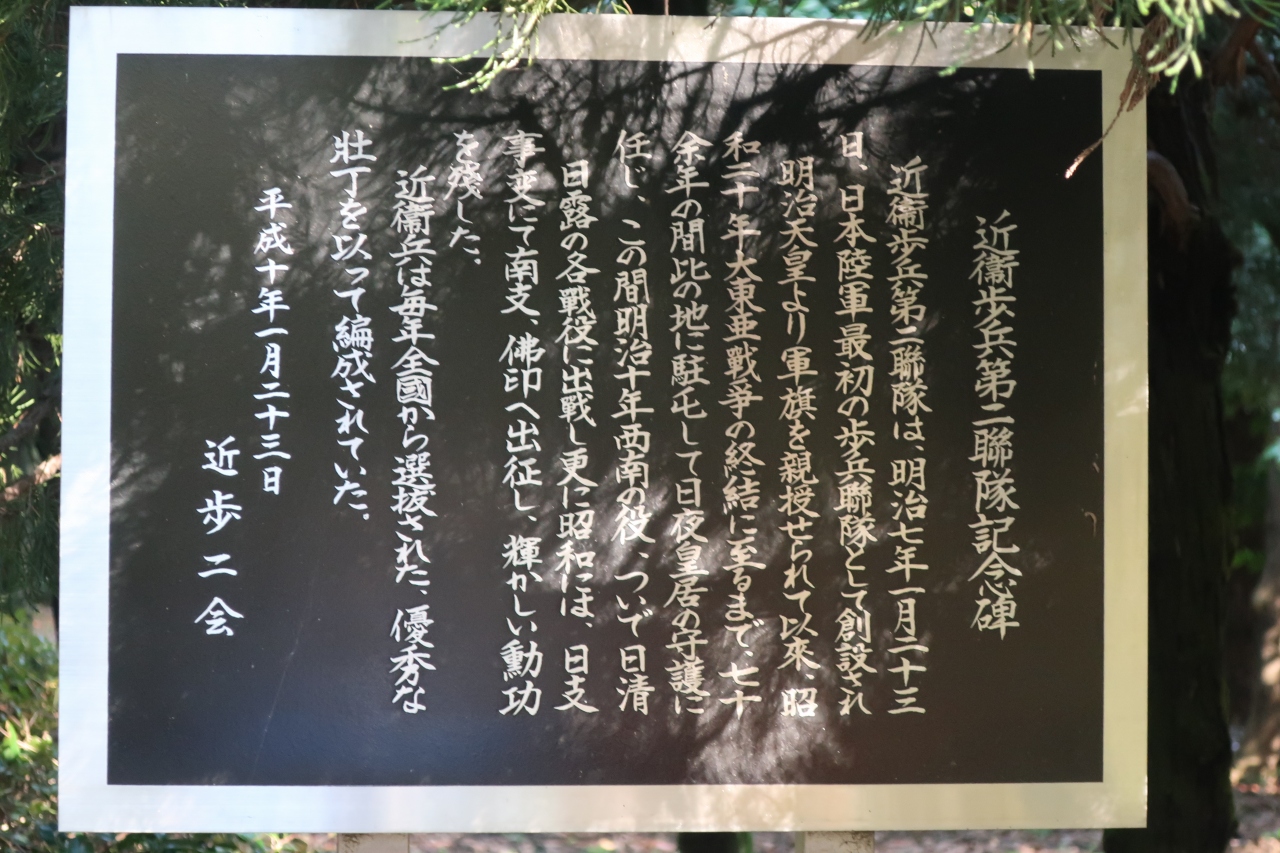 近衞歩兵第二聯隊記念碑
近衞歩兵第二聯隊は、明治七年一月二十三
日、日本陸軍最初の歩兵聯隊として創設され
明治天皇より軍旗を親授せられて以来、昭
和二十年大東亜戦争の終結に至るまで、七十
余年の間此の地に駐屯して日夜皇居の守護に
任じ、この間明治十年西南の役、ついで日清
日露の各戦役に出戦し更に昭和には、日支
事変にて南支、佛印へ出征し、輝かしい勳功
を残した。
近衞兵は毎年全國から選抜された、優秀な
壮丁を以って編成されていた。
平成十年一月二十三日
近歩二会